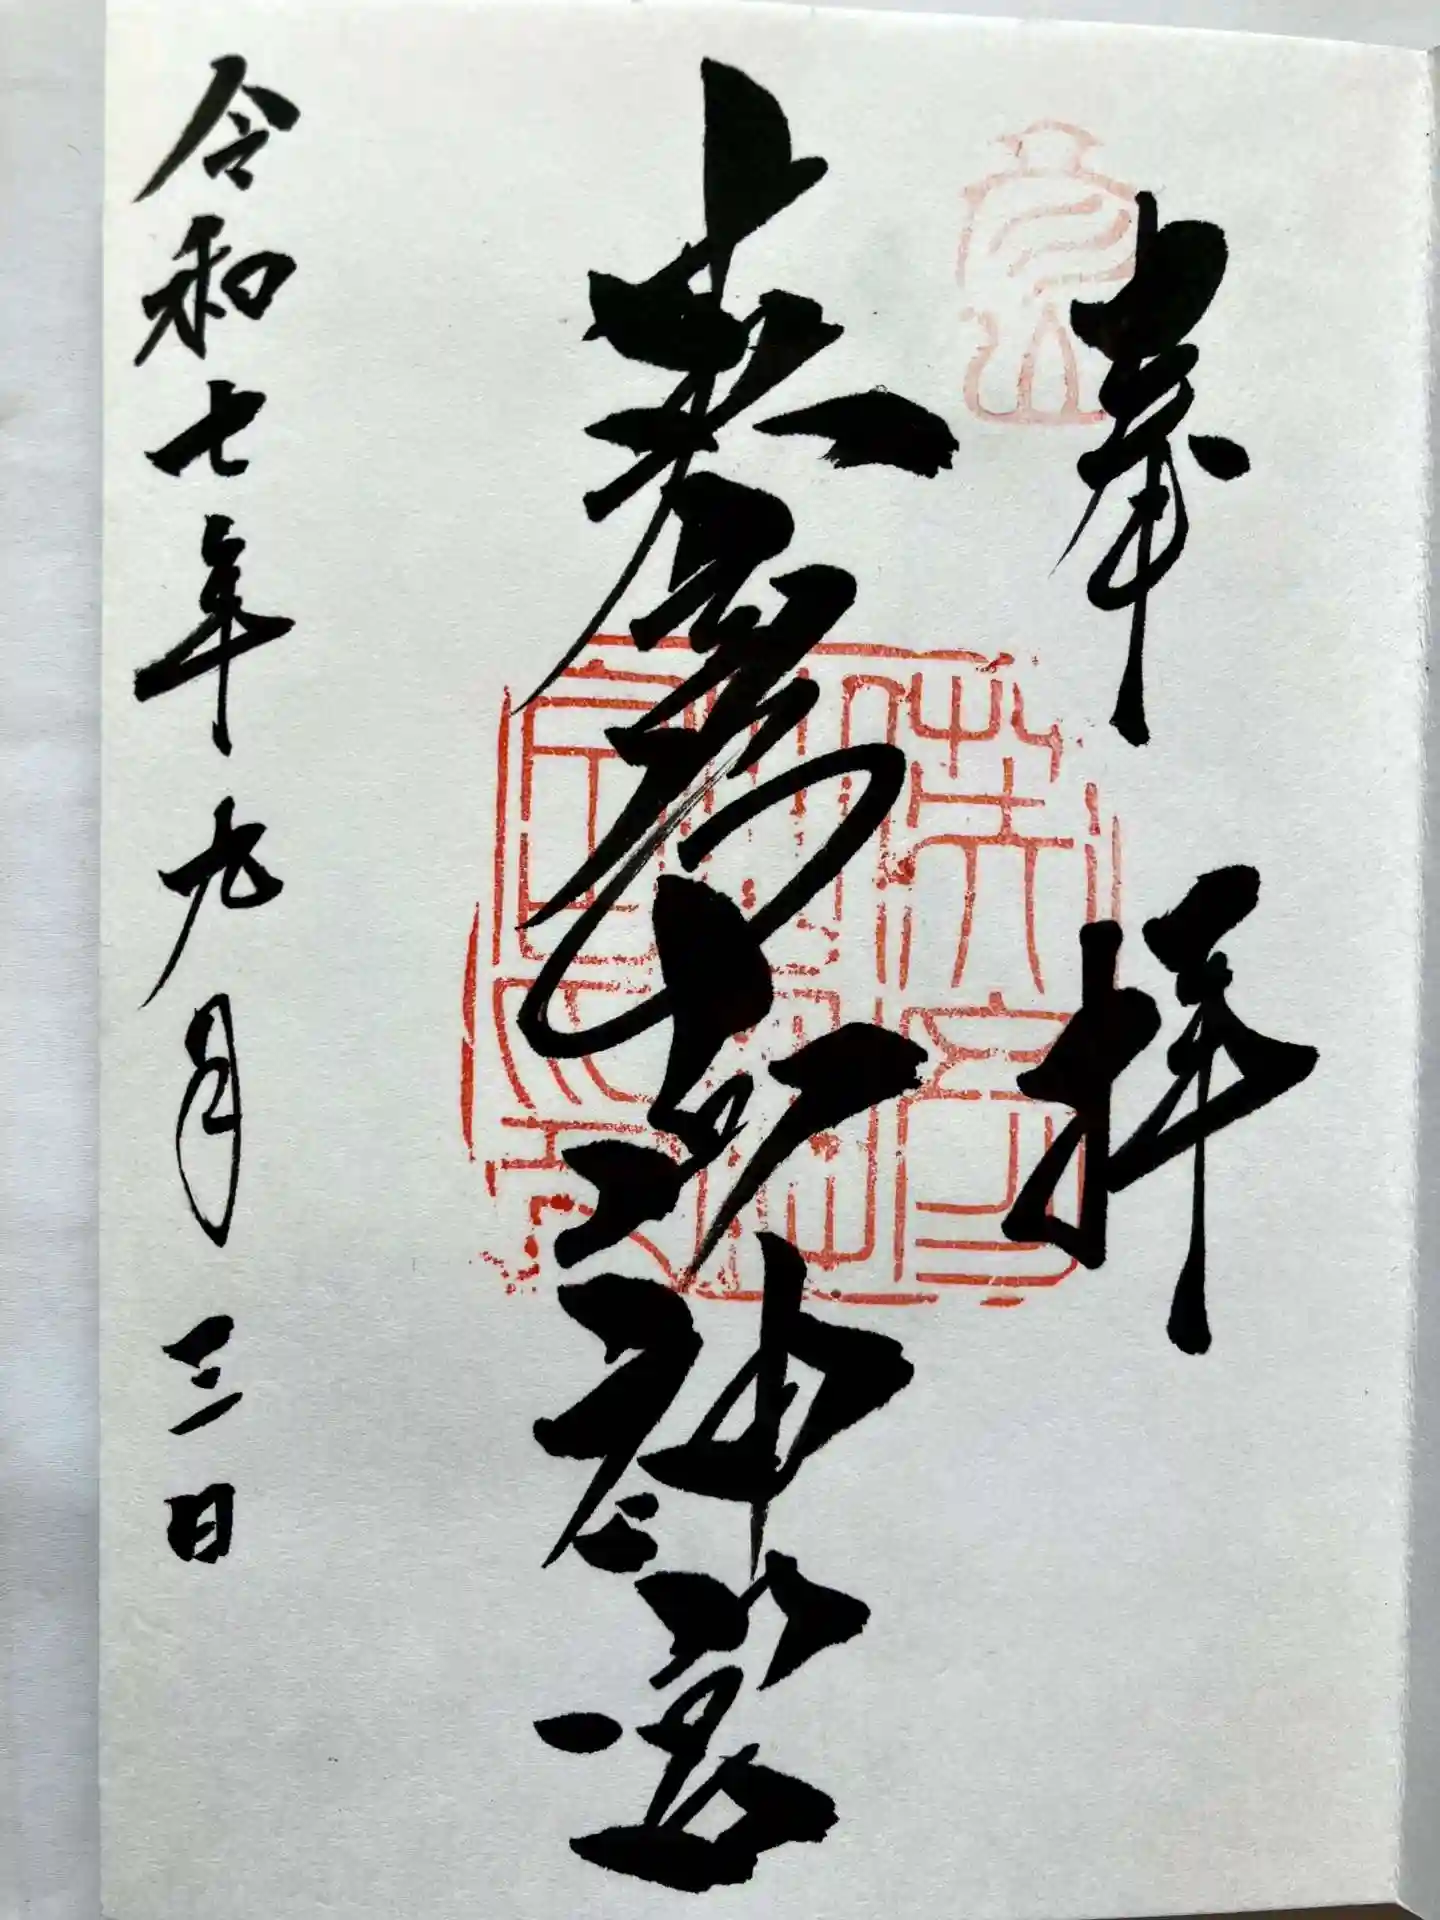 奉拝
英彦山神宮
令和七年九月三日